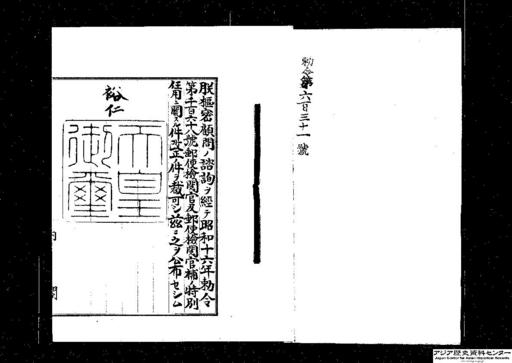 勅令第六百三十一號
朕樞密顧問ノ諮詢ヲ經テ昭和十六年勅令
第千百六十八號郵便檢閲官及郵便檢閲官補ノ特別
任用ニ關スル件改正ノ件ヲ裁可シ茲ニ之ヲ公布セシム
裕仁
天皇
御璽
内
閣
アジア歴史資料センター
Japan Center for Asian Historical Records